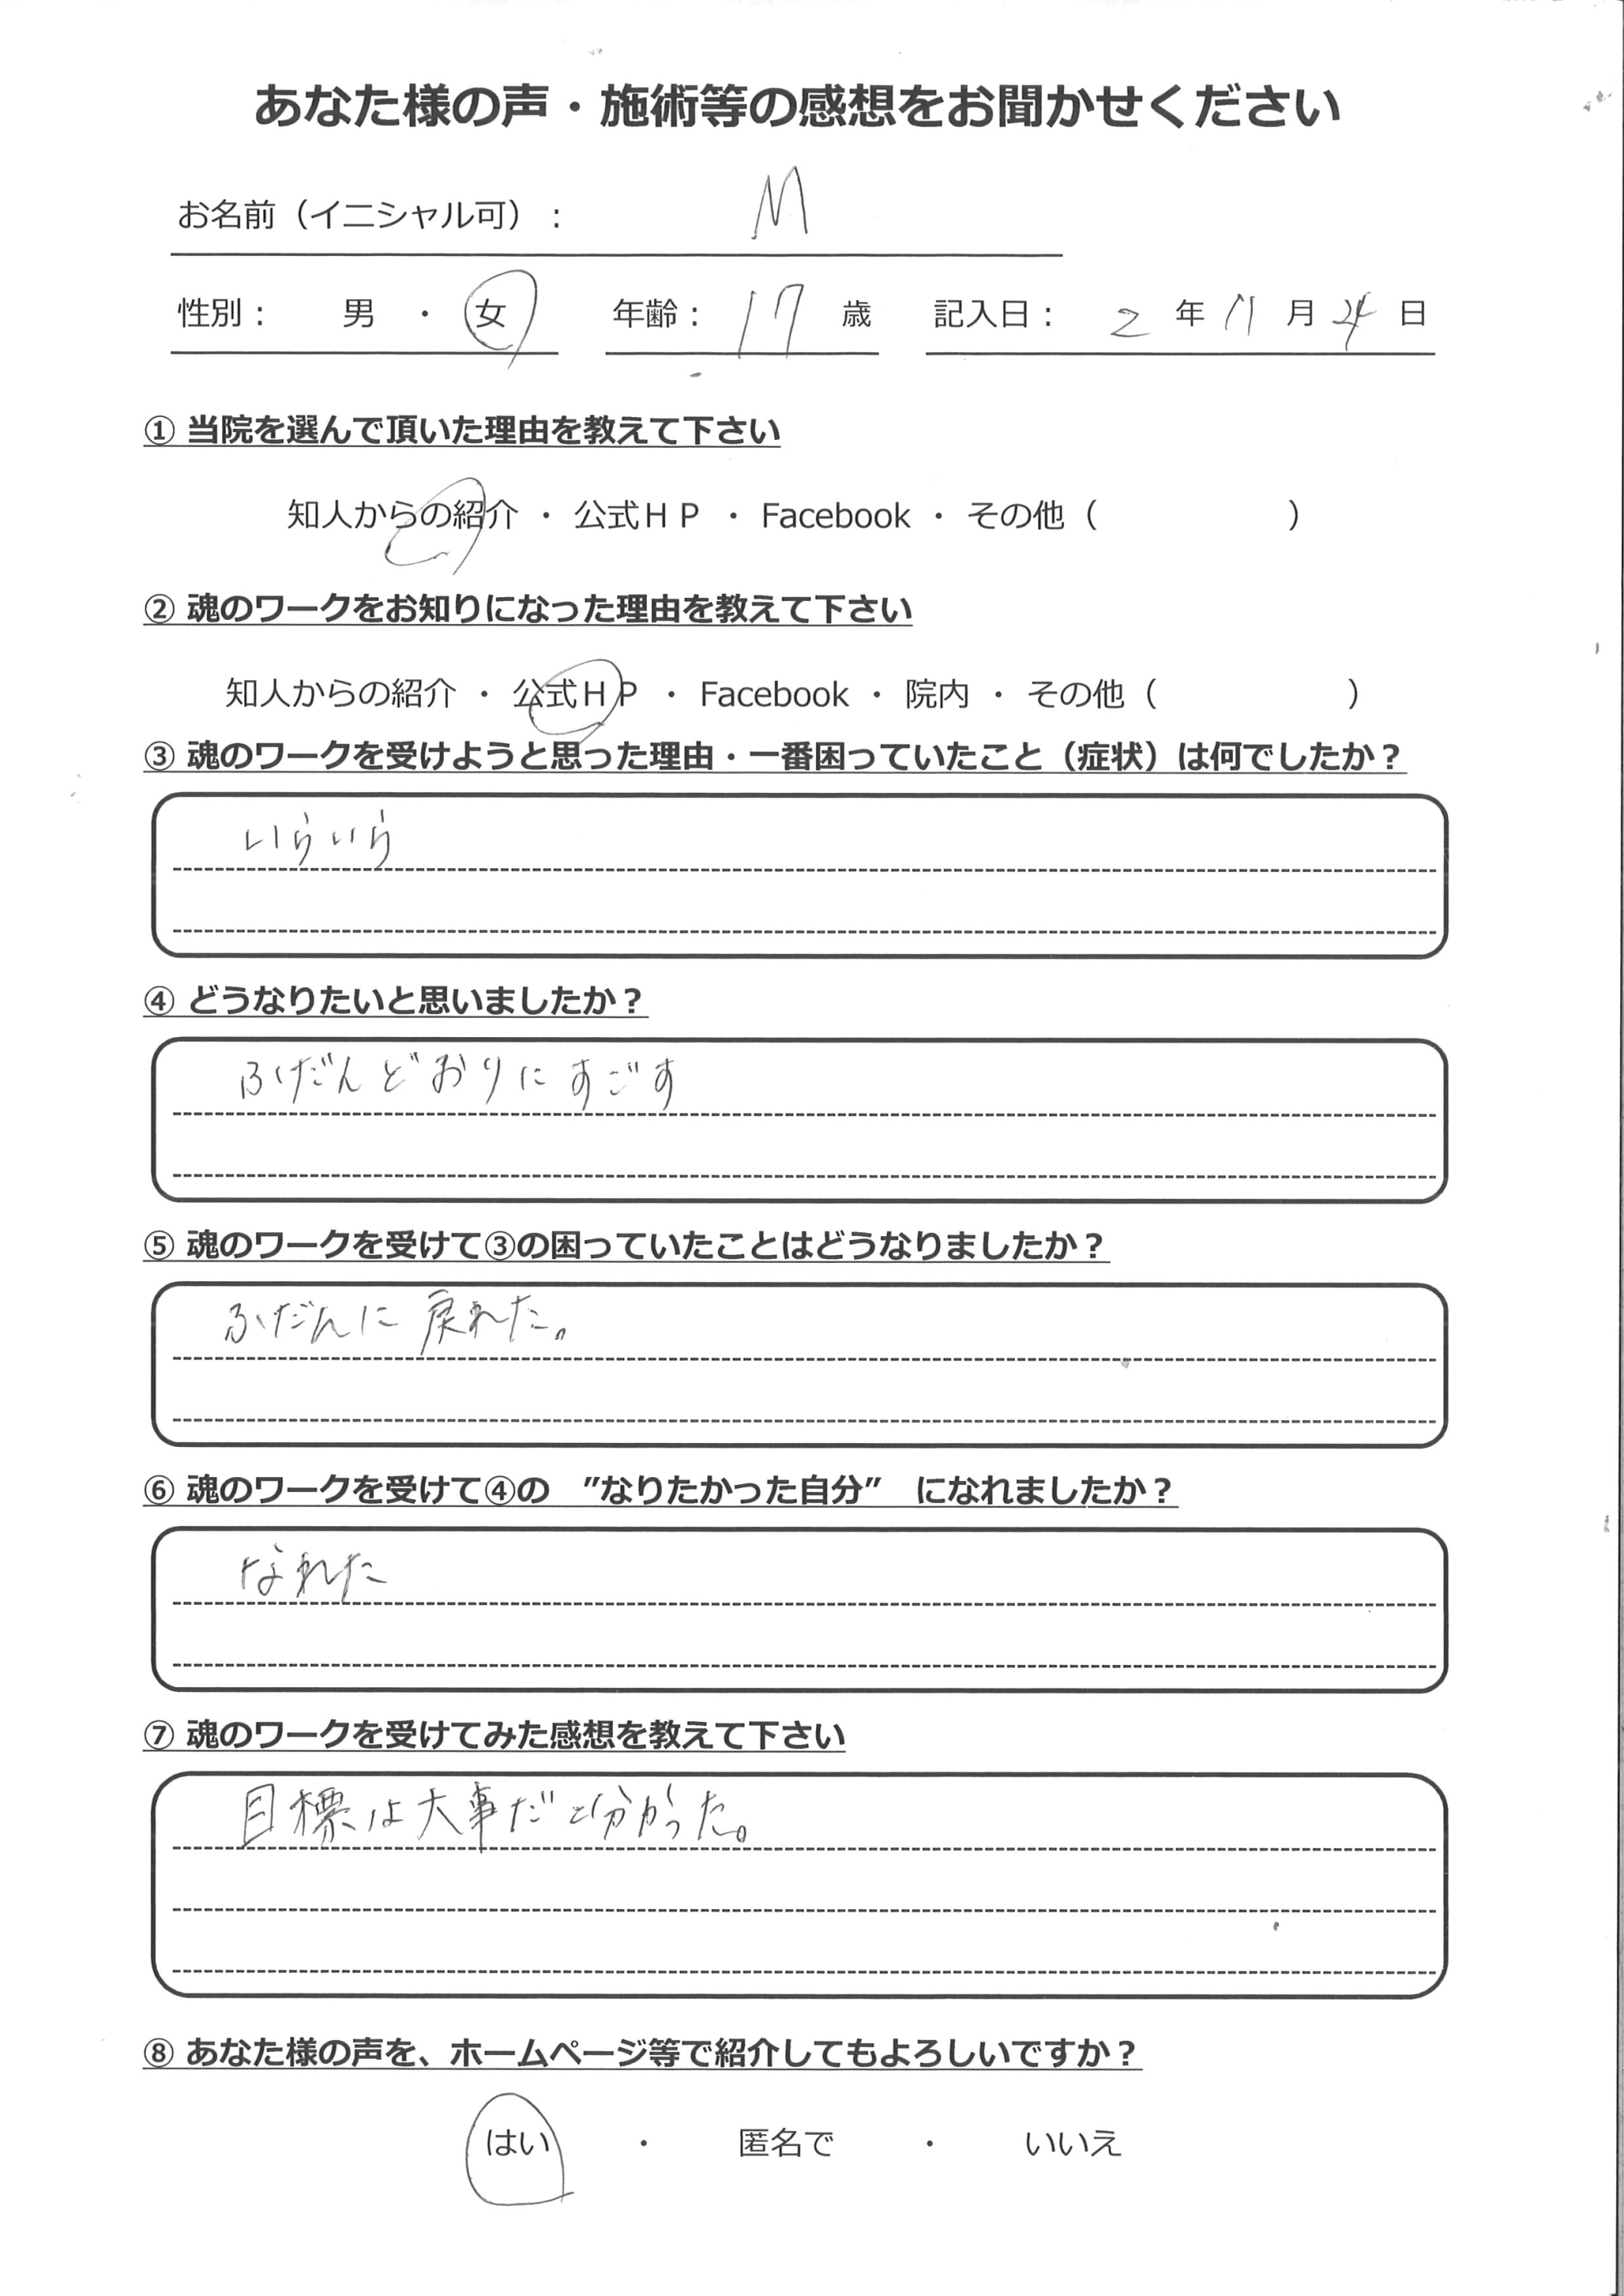 あなた様の声・施術等の感想をお聞かせください
お名前（イニシャル可）： M
性別： 男 ・ 女 年齢： 17 歳 記入日： 2 年 11 月 日
① 当院を選んで頂いた理由を教えて下さい
知人からの紹介 ・ 公式ＨＰ ・ Facebook ・ その他（ ）
② 魂のワークをお知りになった理由を教えて下さい
知人からの紹介 ・ 公式ＨＰ ・ Facebook ・ 院内 ・ その他（ ）
③ 魂のワークを受けようと思った理由・一番困っていたこと（症状）は何でしたか？
いらいら
④ どうなりたいと思いましたか？
ふだんどおりにすごす
⑤ 魂のワークを受けて③の困っていたことはどうなりましたか？
ふだんに戻れた。
⑥ 魂のワークを受けて④の ”なりたかった自分” になれましたか？
なれた
⑦ 魂のワークを受けてみた感想を教えて下さい
目標は大事だと分かった。
⑧ あなた様の声を、ホームページ等で紹介してもよろしいですか？
はい ・ 匿名で ・ いいえ